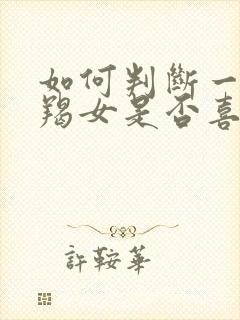 如何判斷一
羯女是否喜
許鞍華